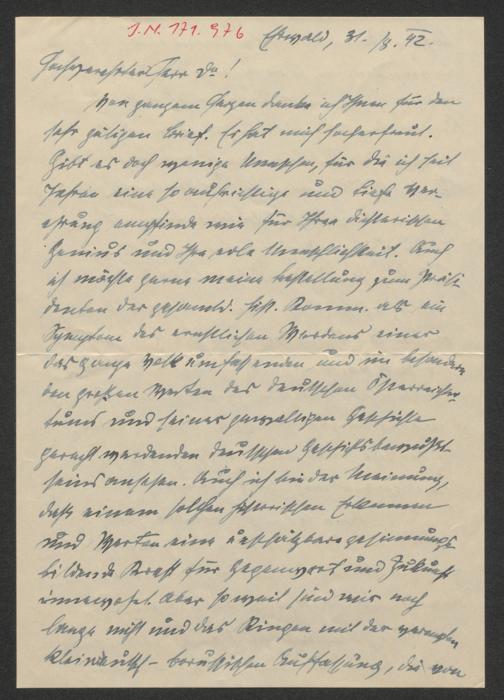 J.N. 171.976
Ehrwald, 31./8. 42.
Hochverehrter Herr Dr!
Von ganzem Herzen danke ich Ihnen für den
sehr gütigen Brief. Er hat mich hocherfreut.
Gibt es doch wenige Menschen, für die ich seit
Jahren eine so aufrichtige und tiefe Ver-
ehrung empfinde wie für Ihren dichterischen
Genius und Ihre edle Menschlichkeit. Auch
ich möchte gerne meine Bestellung zum Präsi-
denten der gesamtd. hist. Komm. als ein
Symptom des ernstlichen Werdens eines
das ganze Volk umfassenden und im besondern
den großen Werten des deutschen Österreicher-
tums und seiner gewaltigen Geschichte
gerecht werdenden deutschen Geschichtsbewußt-
seins ansehen. Auch ich bin der Meinung,
daß einem solchen historischen Erkennen
und Werten eine unschätzbare gesinnungs-
bildende Kraft für Gegenwart und Zukunft
innewohnt. Aber so weit sind wir noch
lange nicht und das Ringen mit der
kleindeutsch-borussischen Auffassung, die von